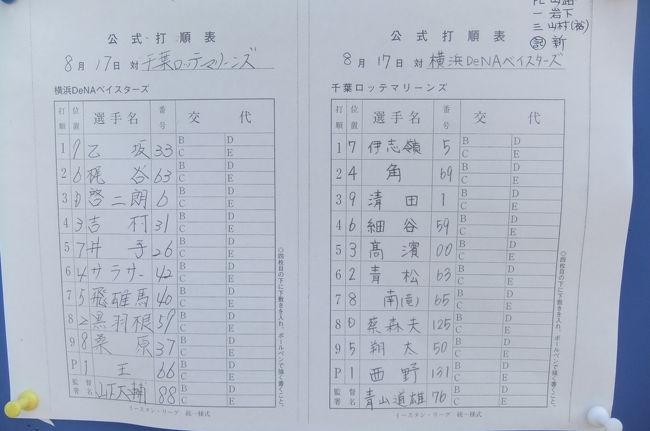 PL 山路
一 岩下
三 山村(裕)
記 新
公式打順表
8月17日 対 千葉ロッテマリーンズ
横浜DeNAベイスターズ
打順 位置 選手名 番号 交代
1 9 乙坂 33 B C D E
2 6 梶谷 63 B C D E
3 D 啓二朗 6 B C D E
4 3 吉村 31 B C D E
5 7 井手 26 B C D E
6 4 サラサー 42 B C D E
7 5 飛雄馬 40 B C D E
8 2 黒羽根 59 B C D E
9 8 桑原 37 B C D E
P 1 王 66 B C D E
監督署名 山下大輔 88 B C D E
イースタン・リーグ 統一様式
○四枚目の下に下敷きを入れ、ボールペンで強く書くこと。
公式打順表
8月17日 対 横浜DeNAベイスターズ
千葉ロッテマリーンズ
打順 位置 選手名 番号 交代
1 7 伊志嶺 5 B C D E
2 4 角 69 B C D E
3 9 清田 1 B C D E
4 6 細谷 59 B C D E
5 3 髙濱 00 B C D E
6 2 青松 63 B C D E
7 8 南(竜) 65 B C D E
8 D 蔡森夫 125 B C D E
9 5 翔太 50 B C D E
P 1 西野 131 B C D E
監督署名 青山道雄 76 B C D E
イースタン・リーグ 統一様式
○四枚目の下に下敷きを入れ、ボールペンで強く書くこと。